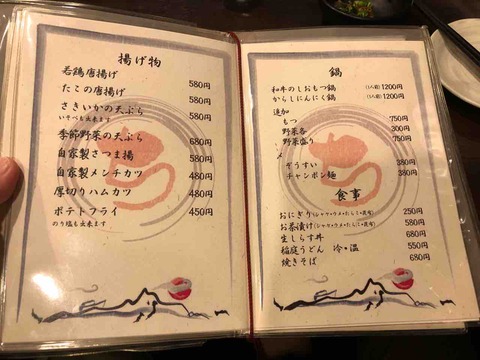 揚げ物
若鶏唐揚げ 580円
たこの唐揚げ 580円
さきいかの天ぷら 580円
いそべも出来ます
季節野菜の天ぷら 680円
自家製さつま揚 580円
自家製メンチカツ 480円
厚切りハムカツ 480円
ポテトフライ 450円
のり塩も出来ます
鍋
和牛のしおもつ鍋 (1人前) 1200円
からしにんにく鍋 (1人前) 1200円
追加
もつ 750円
野菜各 300円
野菜盛り 750円
〆
ぞうすい 380円
チャンポン麺 380円
食事
おにぎり(シャケ・ウメ・たらこ・昆布) 250円
お茶漬け(シャケ・ウメ・たらこ・昆布) 580円
生しらす丼 680円
稲庭うどん 冷・温 550円
焼きそば 680円